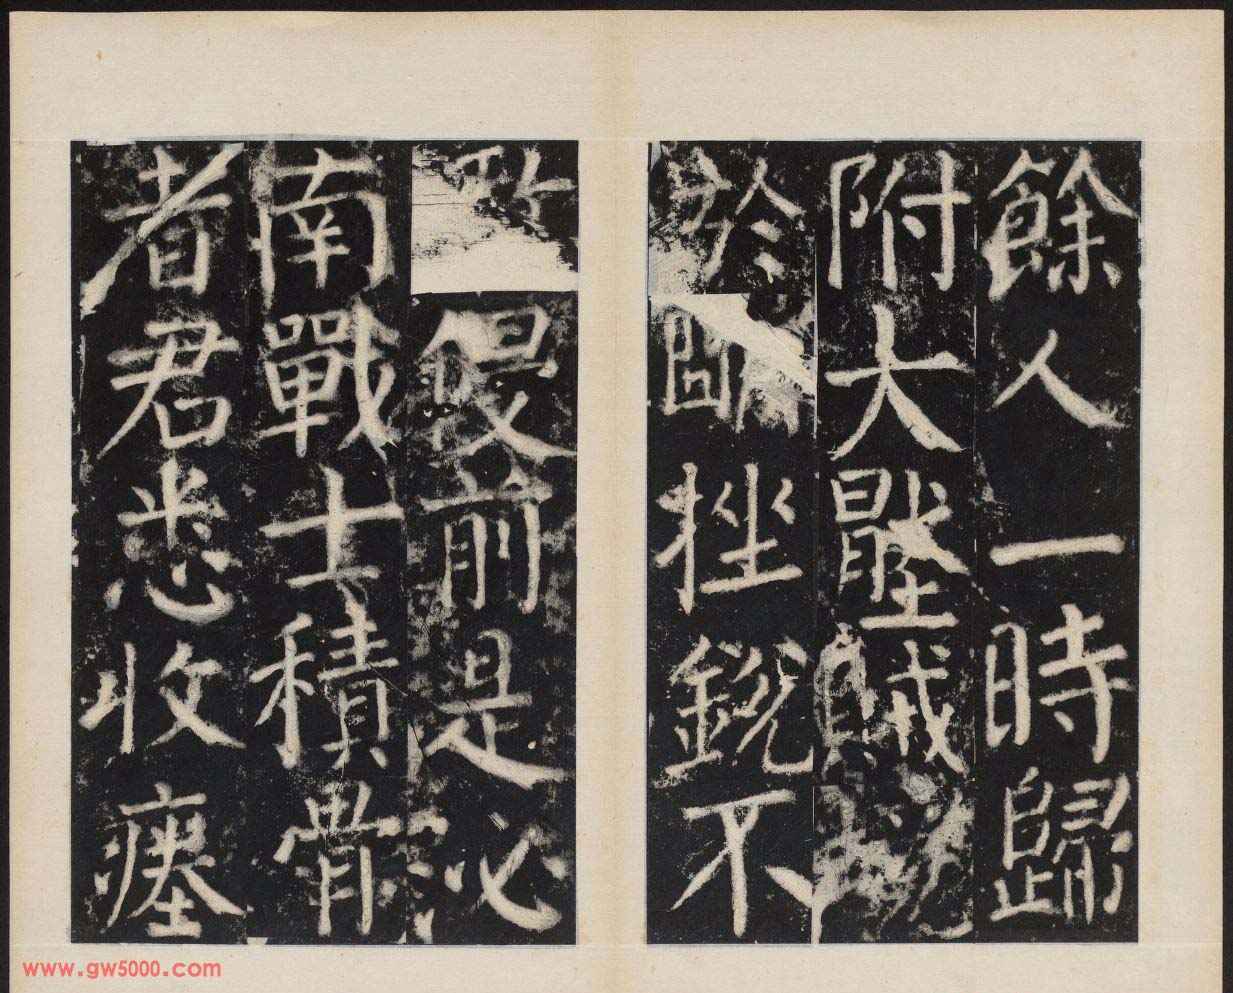 餘人一時歸
附大壓賊
於挫銳不
侵前是泌
南戰士積骨
者君悉收瘞
www.gw5000.com